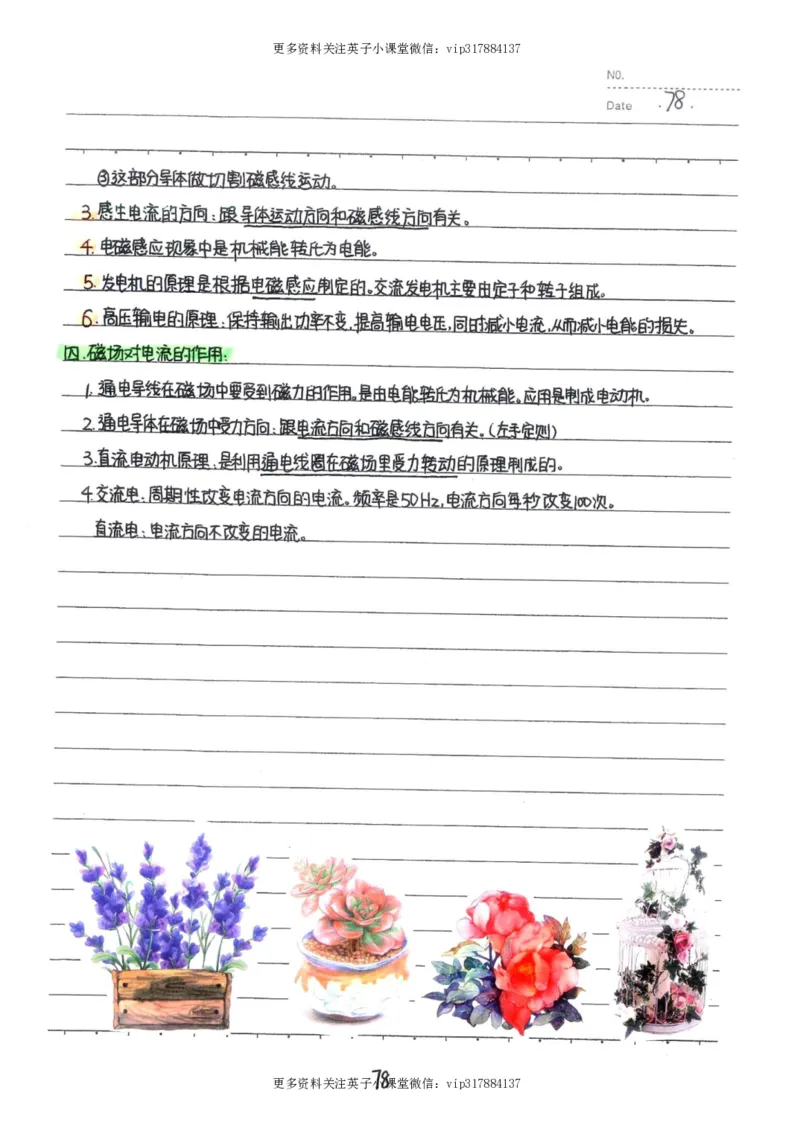 更多资料关注英子小课堂微信：vip317884137
NO.
Date .78.
③这部分导体做切割磁感线运动。
3.感生电流的方向：跟导体运动方向和磁感线方向有关。
4.电磁感应现象中是机械能转化为电能。
5.发电机的原理是根据电磁感应制定的。交流发电机主要由定子和转子组成。
6.高压输电的原理：保持输出功率不变，提高输电电压，同时减小电流，从而减小电能的损失。
四.磁场对电流的作用：
1.通电导线在磁场中要受到磁力的作用。是由电能转化为机械能。应用是制成电动机。
2.通电导体在磁场中受力方向：跟电流方向和磁感线方向有关。（左手定则）
3.直流电动机原理：是利用通电线圈在磁场里受力转动的原理制成的。
4.交流电：周期性改变电流方向的电流。频率是50Hz，电流方向每秒改变100次。
直流电：电流方向不改变的电流。
78
更多资料关注英子小课堂微信：vip317884137